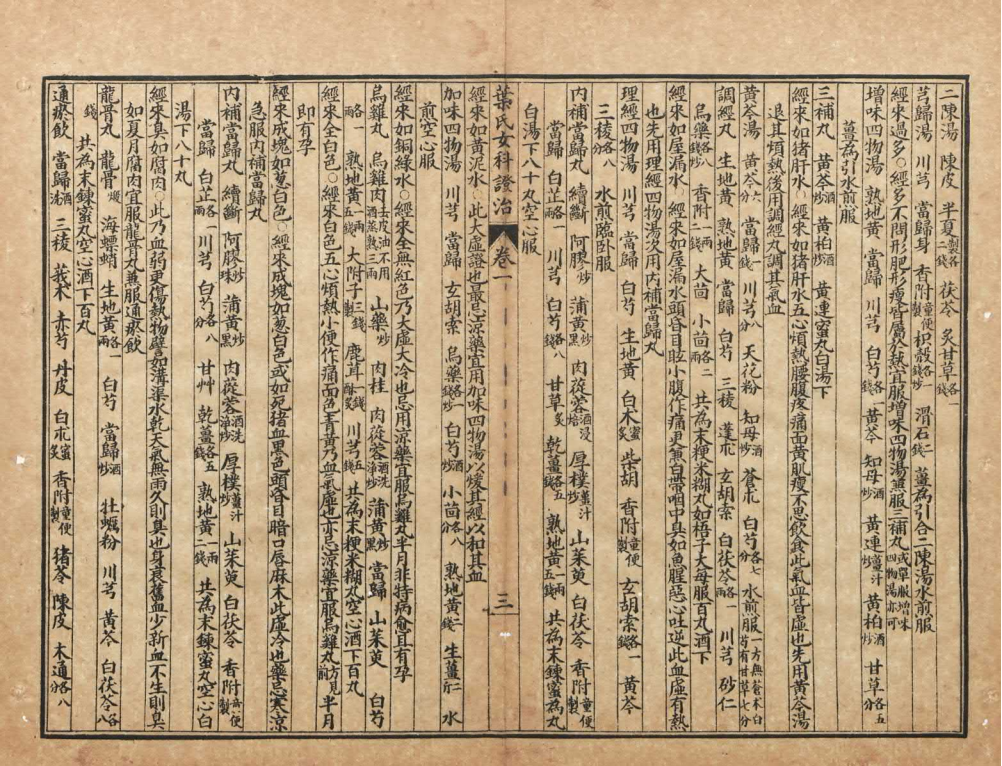 二陳湯 陳皮 半夏製各二錢 茯苓 炙甘草各一錢
芎歸湯 川芎 當歸身 香附童便製 枳殼各一錢炒 滑石二錢 薑為引合二陳湯水煎服
經來過多○經多不問形肥形瘦皆屬於熱宜服增味四物湯兼服三補丸或單服增味四物湯亦可
增味四物湯 熟地黃二錢 當歸 川芎 白芍各一錢 黃芩 知母酒炒 黃連薑汁炒 黃柏酒炒 甘草各五分
薑為引水煎服
三補丸 黃芩酒炒 黃柏酒炒 黃連蜜丸白湯下
經來如猪肝水 經來如猪肝水五心煩熱腰腹疼痛面黃肌瘦不思飲食此氣血皆虛也先用黃芩湯
退其煩熱後用調經丸調其氣血
黃芩湯 黃芩六分 當歸一錢 川芎八分 天花粉 知母酒炒 蒼朮 白芍各七分 水煎服一方無蒼朮白芍有甘草七分
調經丸 生地黃 熟地黃 當歸 白芍 三稜 蓬朮 玄胡索 白茯苓各一兩 川芎 砂仁
烏藥各八錢炒 香附一兩二錢 大茴 小茴各二兩 共為末粳米糊丸如梧子大每服百丸酒下
經來如屋漏水 經來如屋漏水頭昏目眩小腹作痛更兼白帶咽中臭如魚腥惡心吐逆此血虛有熱
也先用理經四物湯次用內補當歸丸
理經四物湯 川芎 當歸 白芍 生地黃 白朮蜜炙 柴胡 香附童便製 玄胡索各一錢 黃芩
三稜各八分 水煎臨卧服
內補當歸丸 續斷 阿膠炒 蒲黃炒黑 肉蓯蓉酒浸焙 厚樸薑汁炒 山茱萸 白茯苓 香附童便製
當歸 白芷各一兩 川芎 白芍各八錢 甘草炙 乾薑各五錢 熟地黃一兩五錢 共為末鍊蜜為丸
白湯下八十丸空心服
葉氏女科證治 卷一 三
經來如黃泥水 此大虛證也最忌涼藥宜用加味四物湯以煖其經以和其血
加味四物湯 川芎 當歸 玄胡索 烏藥各一錢炒 白芍酒炒 小茴各八分 熟地黃二錢 生薑三片 水
煎空心服
經來如銅綠水○經來全無紅色乃大虛大冷也忌用涼藥宜服烏雞丸半月非特病愈且有孕
烏雞丸 烏雞肉去皮油不用酒蒸熟三兩 山藥炒 肉桂 肉蓯蓉酒洗淨炒 蒲黃炒黑 當歸 山茱萸 白芍
各一兩 熟地黃一兩五錢 大附子三錢 鹿茸一錢酥炙 川芎五錢 共為末粳米糊丸空心酒下百丸
經來全白色○經來白色五心煩熱小便作痛面色青黃乃血氣虛也亦忌涼藥宜服烏雞丸方見前半月
即有孕
經來成塊如葱白色○經來成塊如葱白色或如死猪血黑色頭昏目暗口唇麻木此虛冷也藥忌寒涼
急服內補當歸丸
內補當歸丸 續斷 阿膠炒珠 蒲黃炒黑 肉蓯蓉酒洗淨炒 厚樸薑汁炒 山茱萸 白茯苓 香附童便製
當歸 白芷各一兩 川芎 白芍各八分 甘艸 乾薑各五錢 熟地黃一兩錢 共為末鍊蜜丸空心白
湯下八十丸
經來臭如腐肉○此乃血弱更傷熱物譬如溝渠水乾天氣無雨久則臭也身衰舊血少新血不生則臭
如夏月腐肉宜服龍骨丸兼服通瘀飲
龍骨丸 龍骨煅 海螵蛸 生地黃各一兩 白芍 當歸酒炒 牡蠣粉 川芎 黃芩 白茯苓各八
錢 共為末鍊蜜丸空心酒下百丸
通瘀飲 當歸酒洗 三稜 莪朮 赤芍 丹皮 白朮蜜炙 香附童便製 猪苓 陳皮 木通各八分